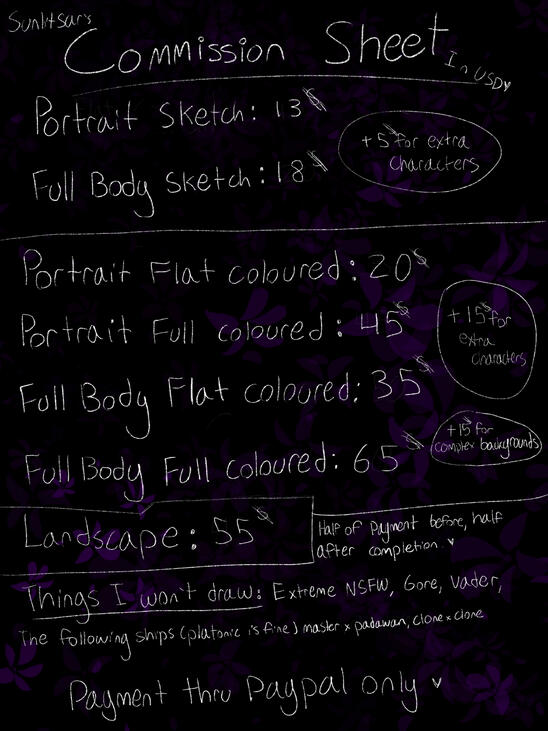 Sunlitsar's
Commission Sheet
In USD
Portrait Sketch: 13$
Full Body Sketch: 18$
+5$ for extra
characters
Portrait Flat coloured: 20$
Portrait Full coloured: 45$
Full Body Flat coloured: 35$
Full Body Full coloured: 65$
+15$ for
extra
characters
+15$ for
complex backgrounds
Landscape: 55$
Half of Payment before, half
after completion.
Things I won't draw: Extreme NSFW, Gore, Vader,
The following ships (platonic is fine) master x padawan, clone x clone
Payment thru Paypal only